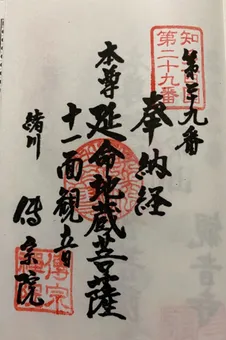 第二十九番
知四国
第二十九番
奉納経
本尊
延命地蔵菩薩
十一面観音
緒川
傳宗院
傳宗